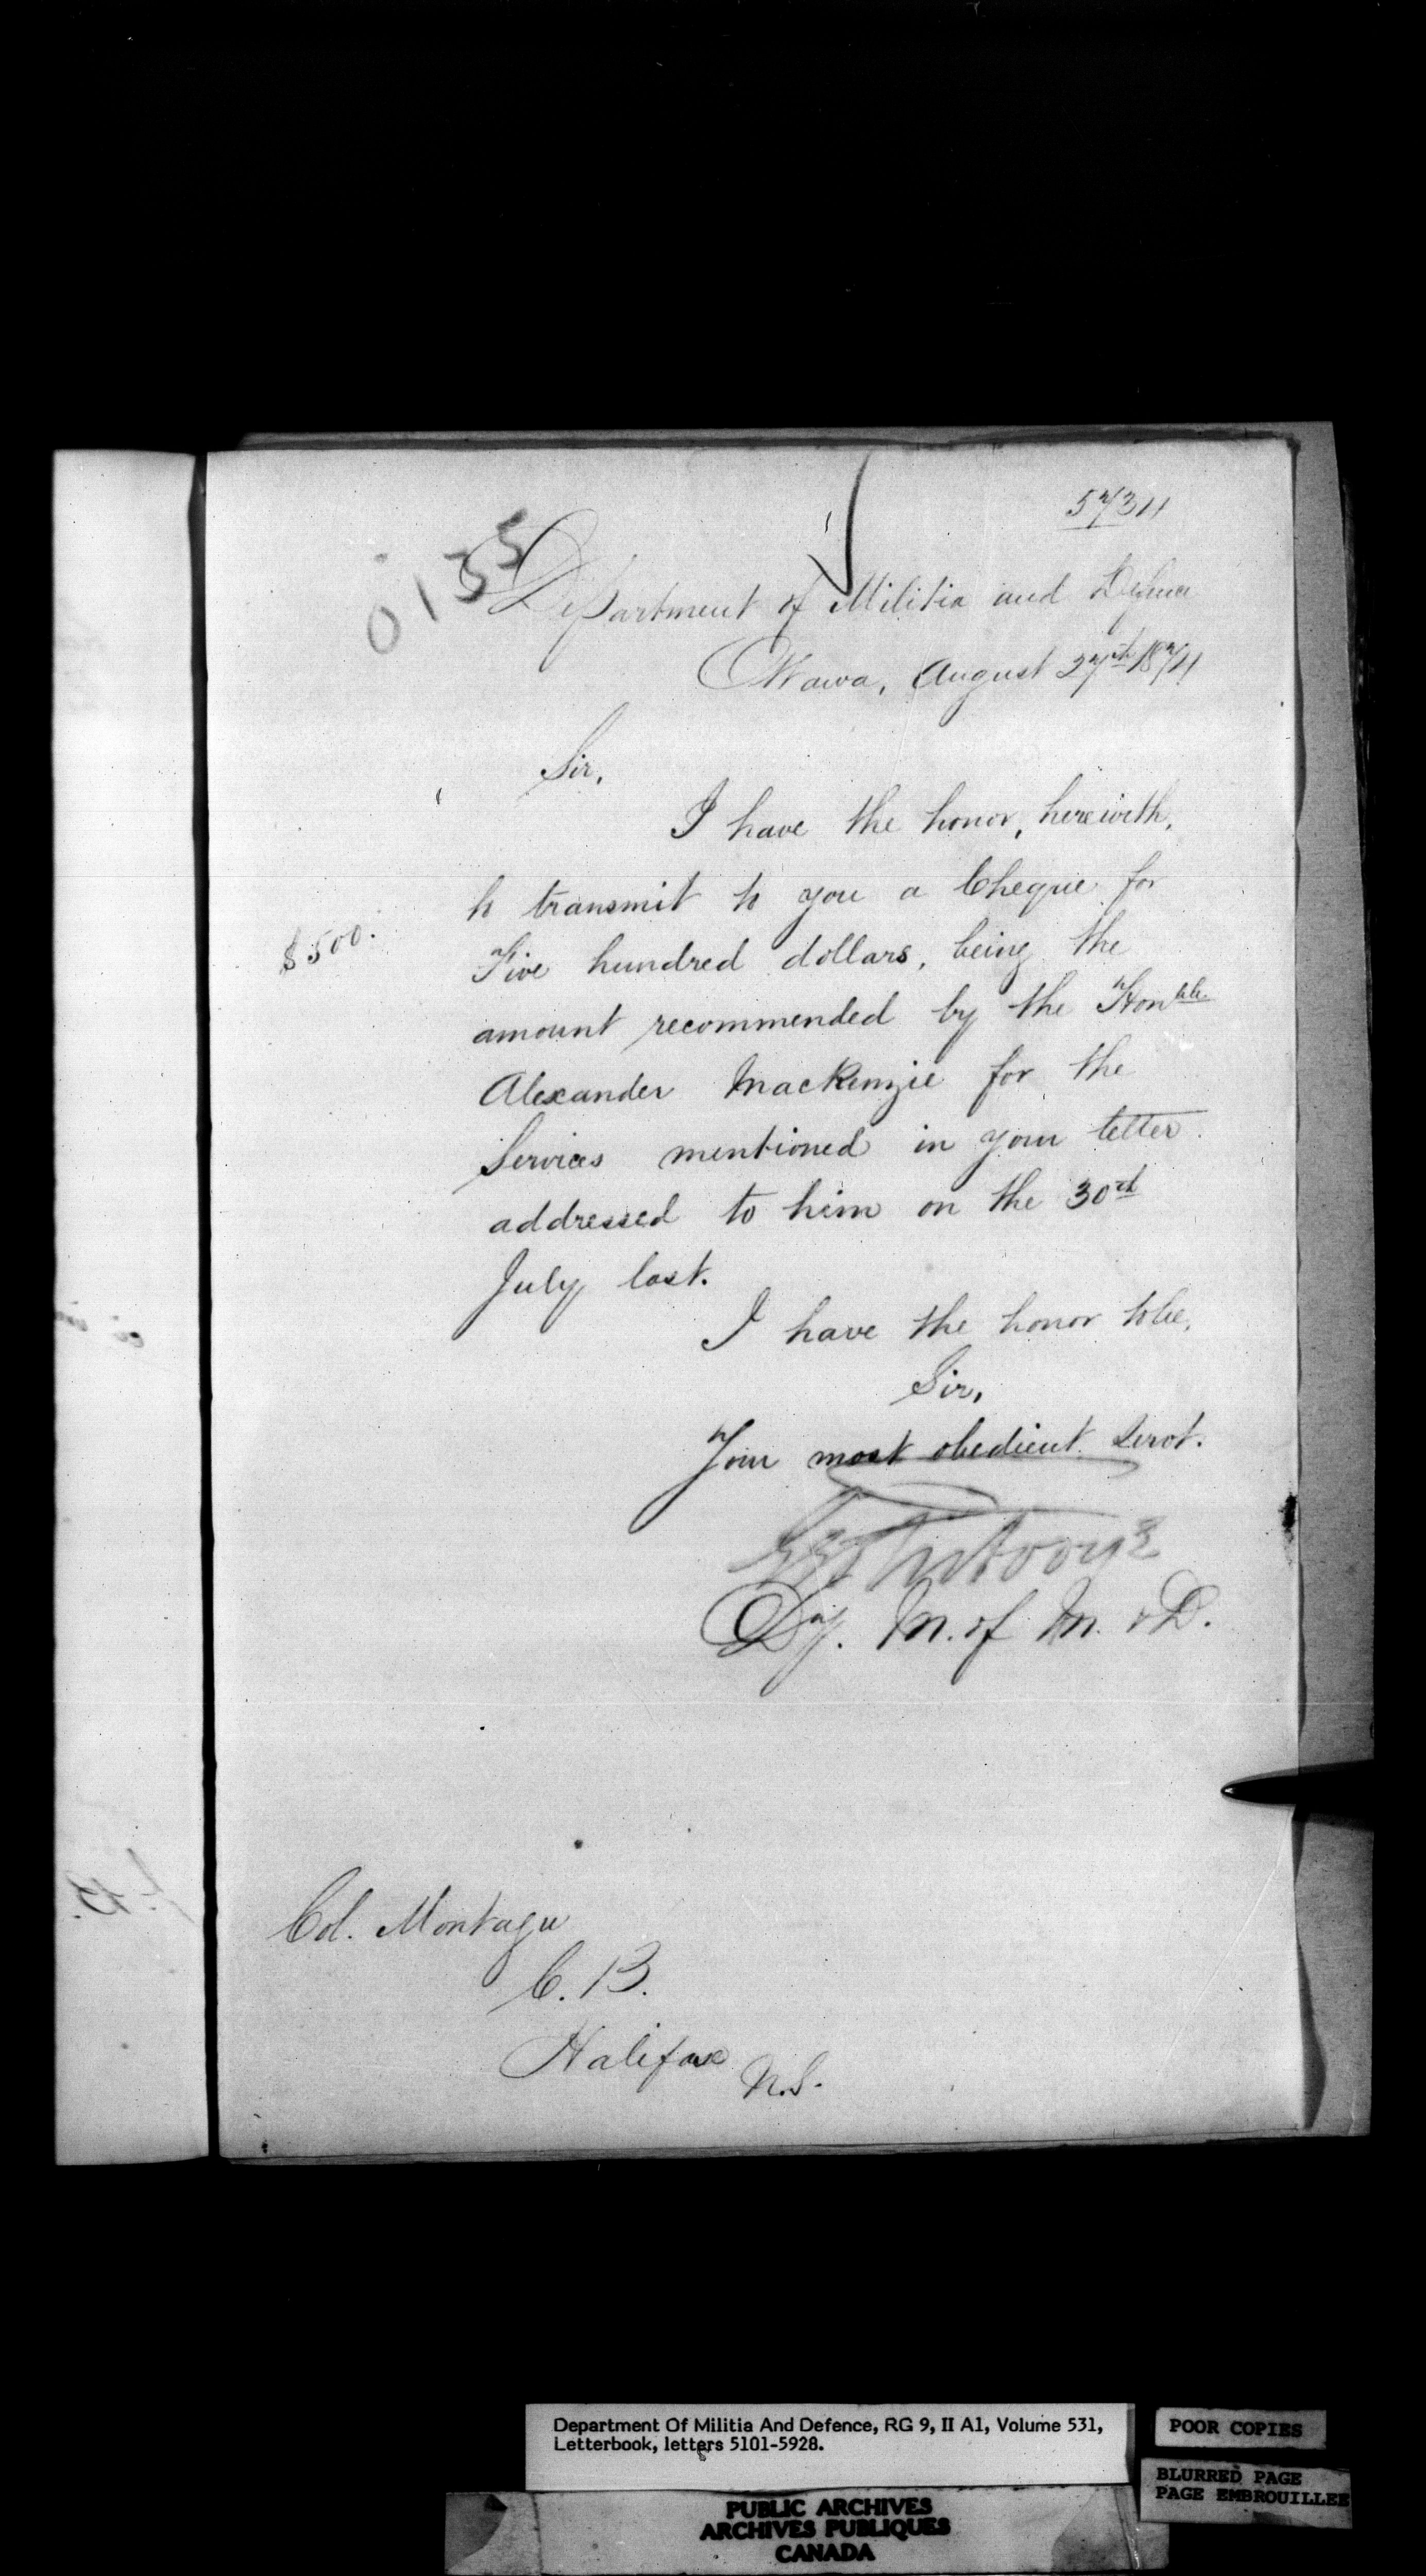 5734
0135
Department of Militia and Defence
Ottawa, August 27th 1874
Sir,
I have the honor, herewith,
to transmit to you a Cheque for
$500.
Five hundred dollars, being the
amount recommended by the Honble.
Alexander MacKenzie for the
Services mentioned in your letter
addressed to him on the 30th
July last.
I have the honor to be,
Sir,
Your most obedient Servt.
Dy. M. of M. & D.
Col. Montagu
C. B.
Halifax
N.S.
Department Of Militia And Defence, RG 9, II A1, Volume 531,
Letterbook, letters 5101-5928.
POOR COPIES
BLURRED PAGE
PAGE EMBROUILLEE
PUBLIC ARCHIVES
ARCHIVES PUBLIQUES
CANADA